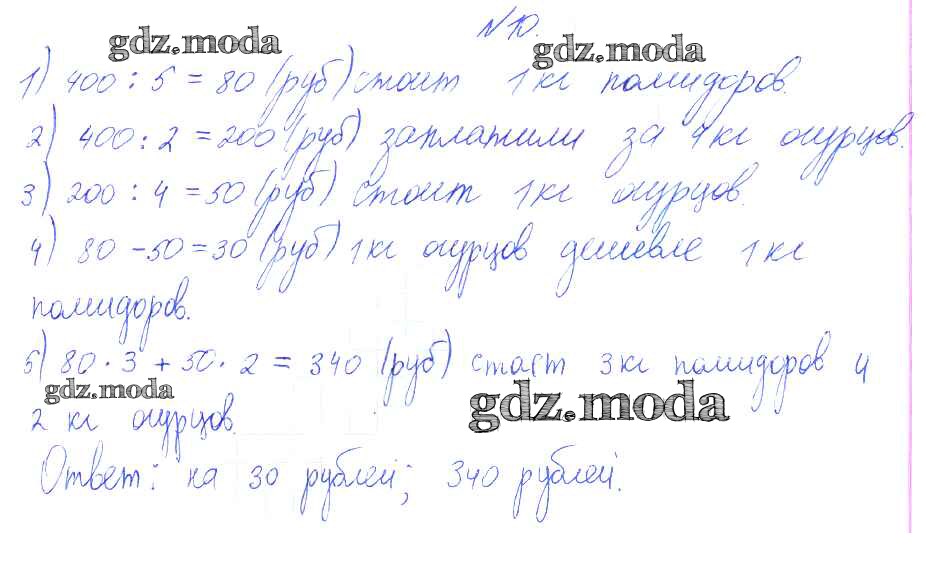 № 10.
gdz.moda gdz.moda
1) 400 : 5 = 80 (руб) стоит 1 кг помидоров.
2) 400 : 2 = 200 (руб) заплатили за 4 кг огурцов.
3) 200 : 4 = 50 (руб) стоит 1 кг огурцов.
4) 80 - 50 = 30 (руб) 1 кг огурцов дешевле 1 кг
помидоров.
5) 80 · 3 + 50 · 2 = 340 (руб) стоят 3 кг помидоров и
gdz.moda gdz.moda
2 кг огурцов.
Ответ: на 30 рублей; 340 рублей.